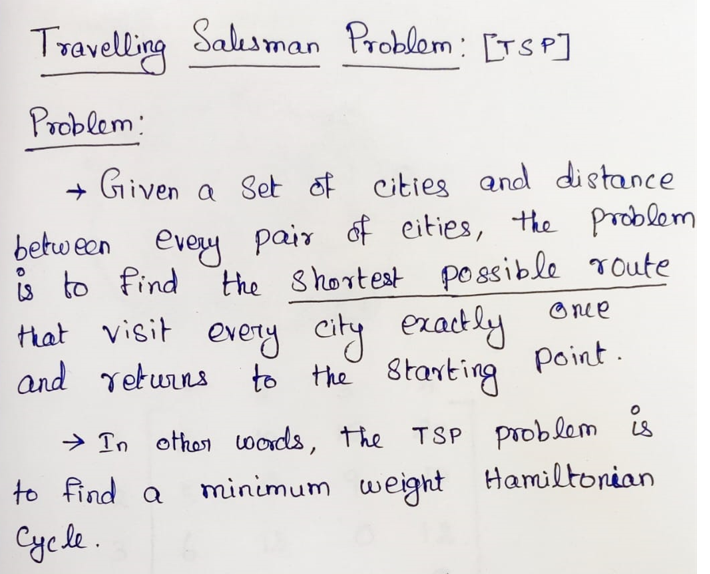 Travelling Salesman Problem: [TSP]
Problem:
→ Given a set of cities and distance
between every pair of cities, the problem
is to find the shortest possible route
that visit every city exactly once
and returns to the starting point.
→ In other words, the TSP problem is
to find a minimum weight Hamiltonian
Cycle.